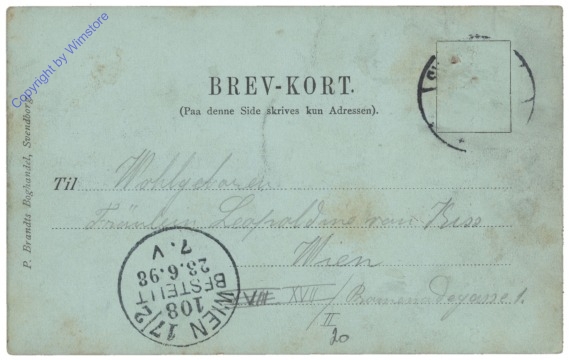 Copyright by Wimstore
BREV-KORT.
(Paa denne Side skrives kun Adressen).
P. Brandts Boghandel, Svendborg.
Til Wohlgeboren
Fräulein Leopoldine von Kiss
Wien
VIII XVII/ Promenadegasse 1.
II
20
WIEN 17/2
108
BESTELLT
23.6.98
7.V